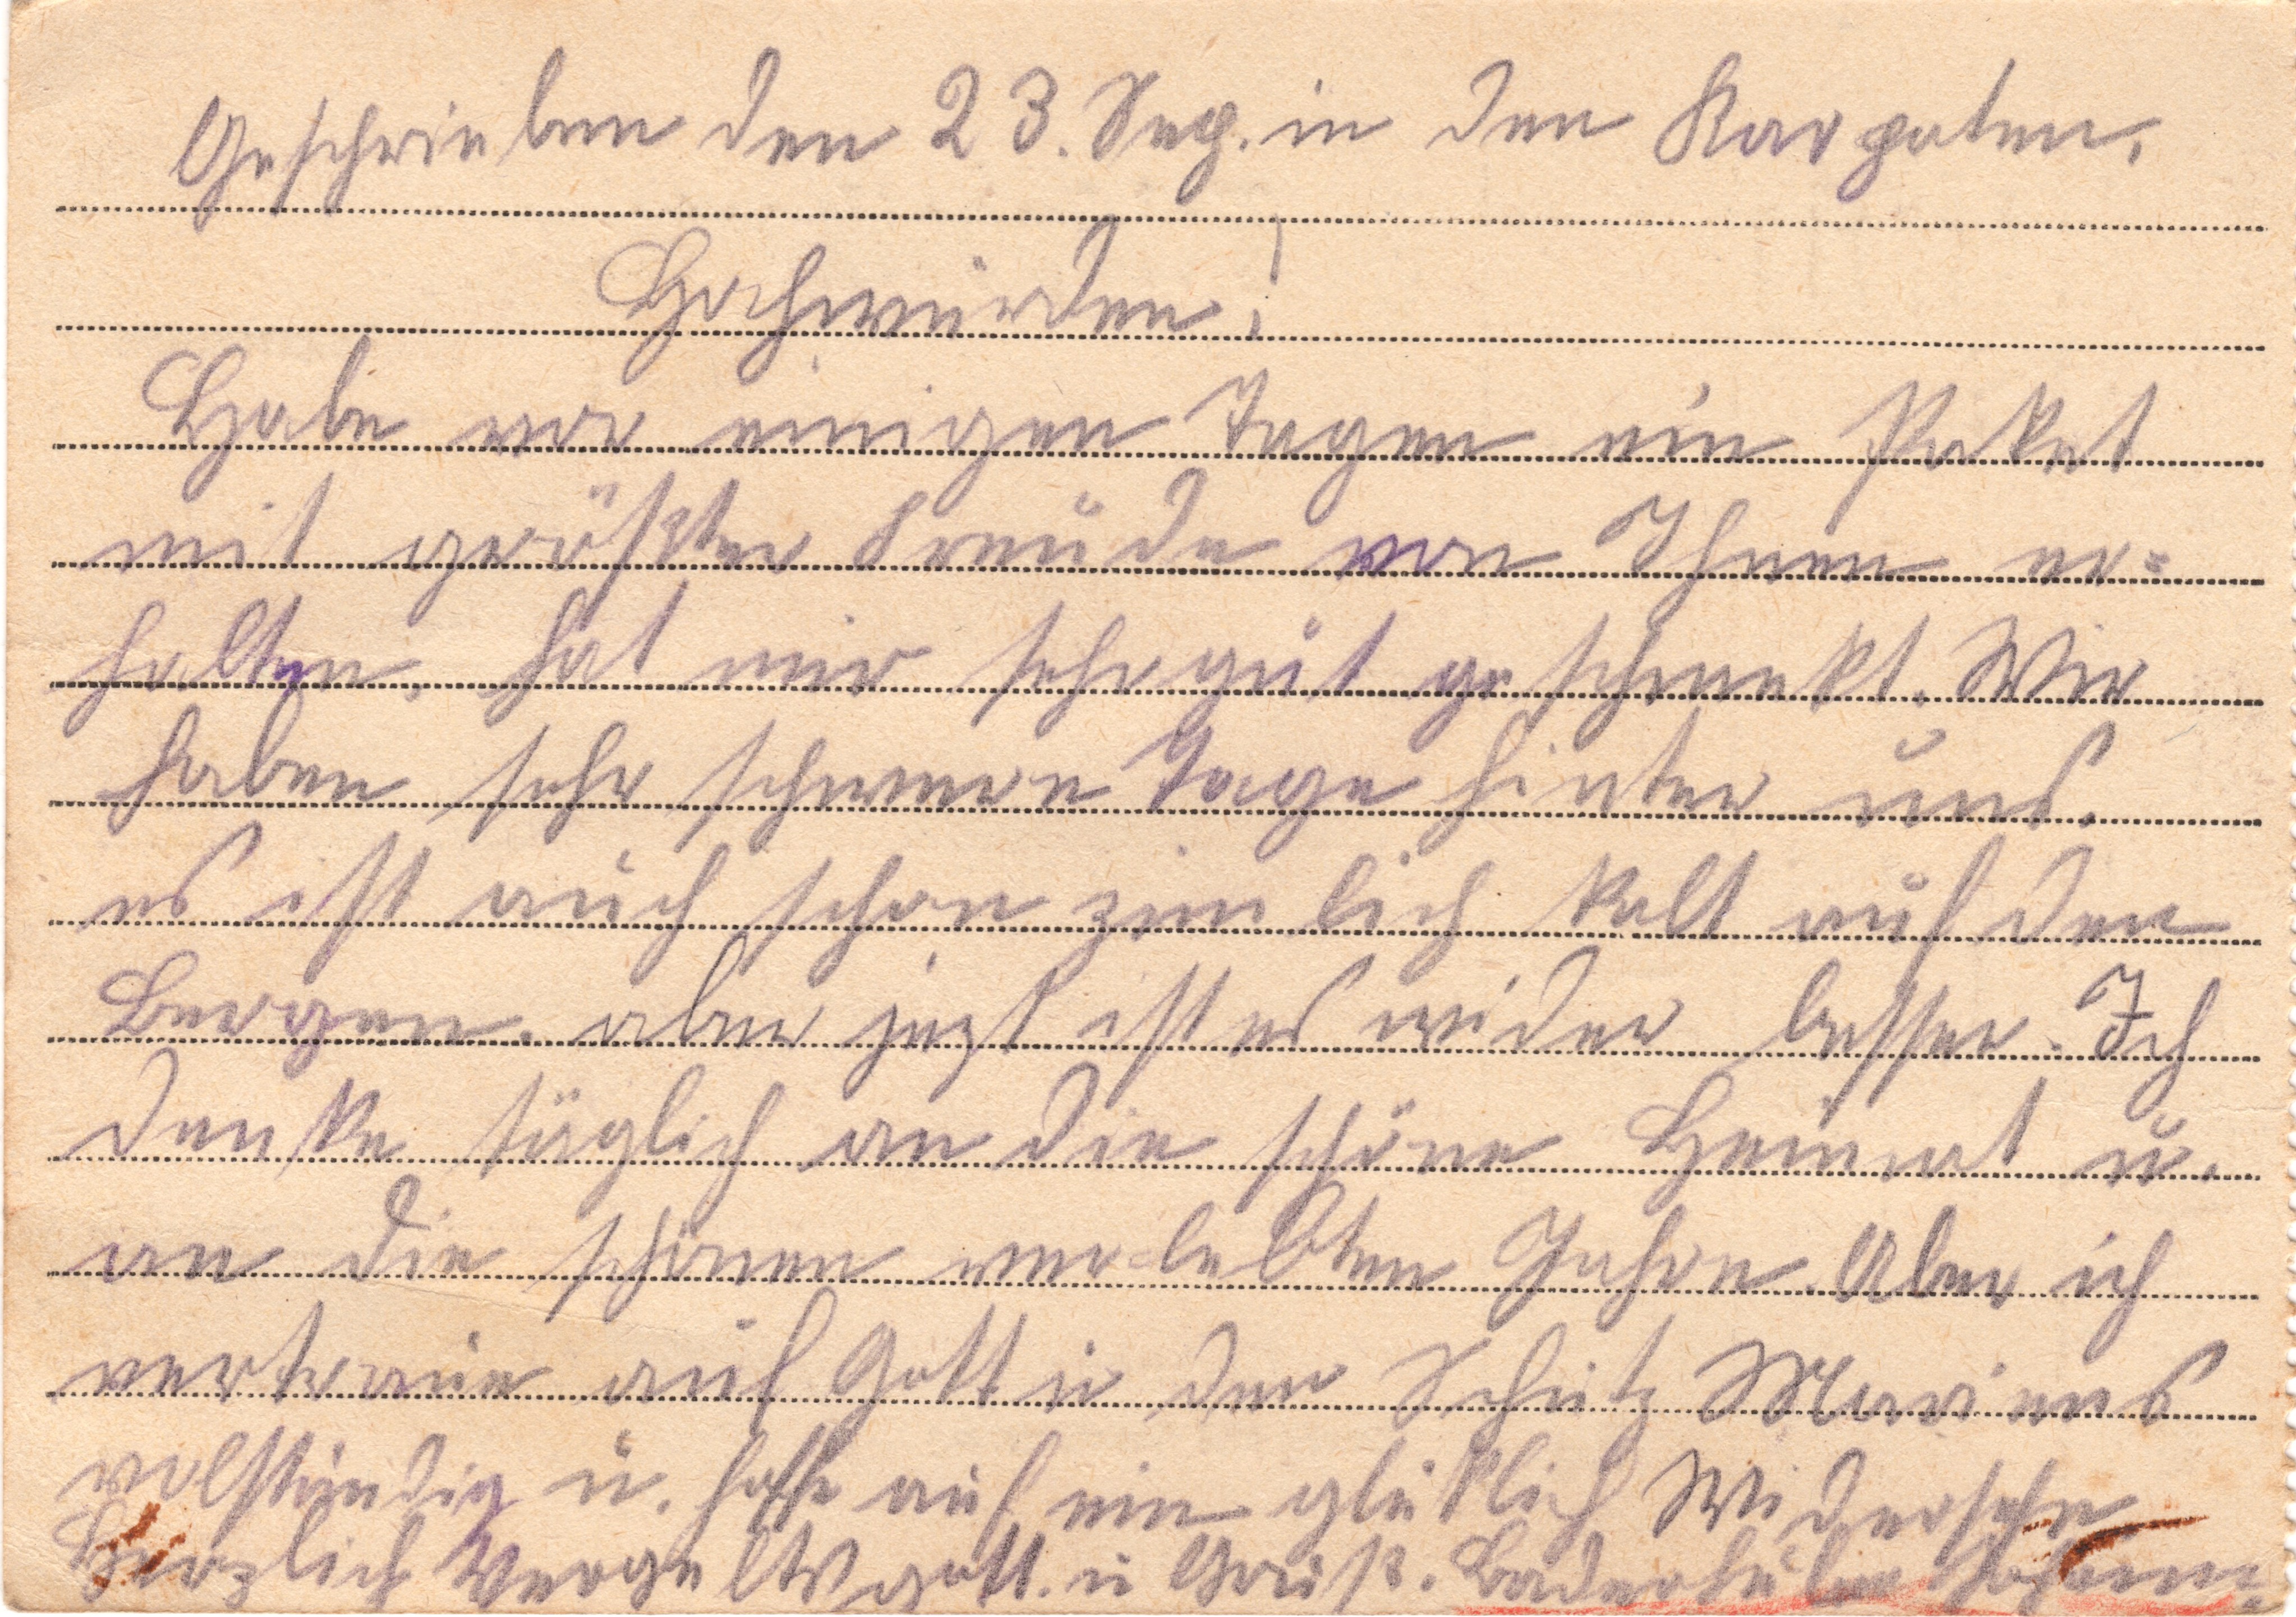 Geschrieben den 23. Sep. in den Karpaten.
Hochwürden!
Habe vor einigen Tagen ein Paket
mit größter Freude von Ihnen er=
halten, hat mir sehr gut geschmekt. Wir
haben sehr schwere Tage hinter uns.
es ist auch schon zimlich kalt auf den
Bergen. aber jezt ist es wider besser. Ich
denke täglich an die schöne Heimat u.
an die schönen verlebten Jahre. Aber ich
vertraue auf Gott u den Schutz Mariens
volständig u. hoffe auf ein glüklich Widersehn
Herzlich Vergeltsgott. u Gruß.